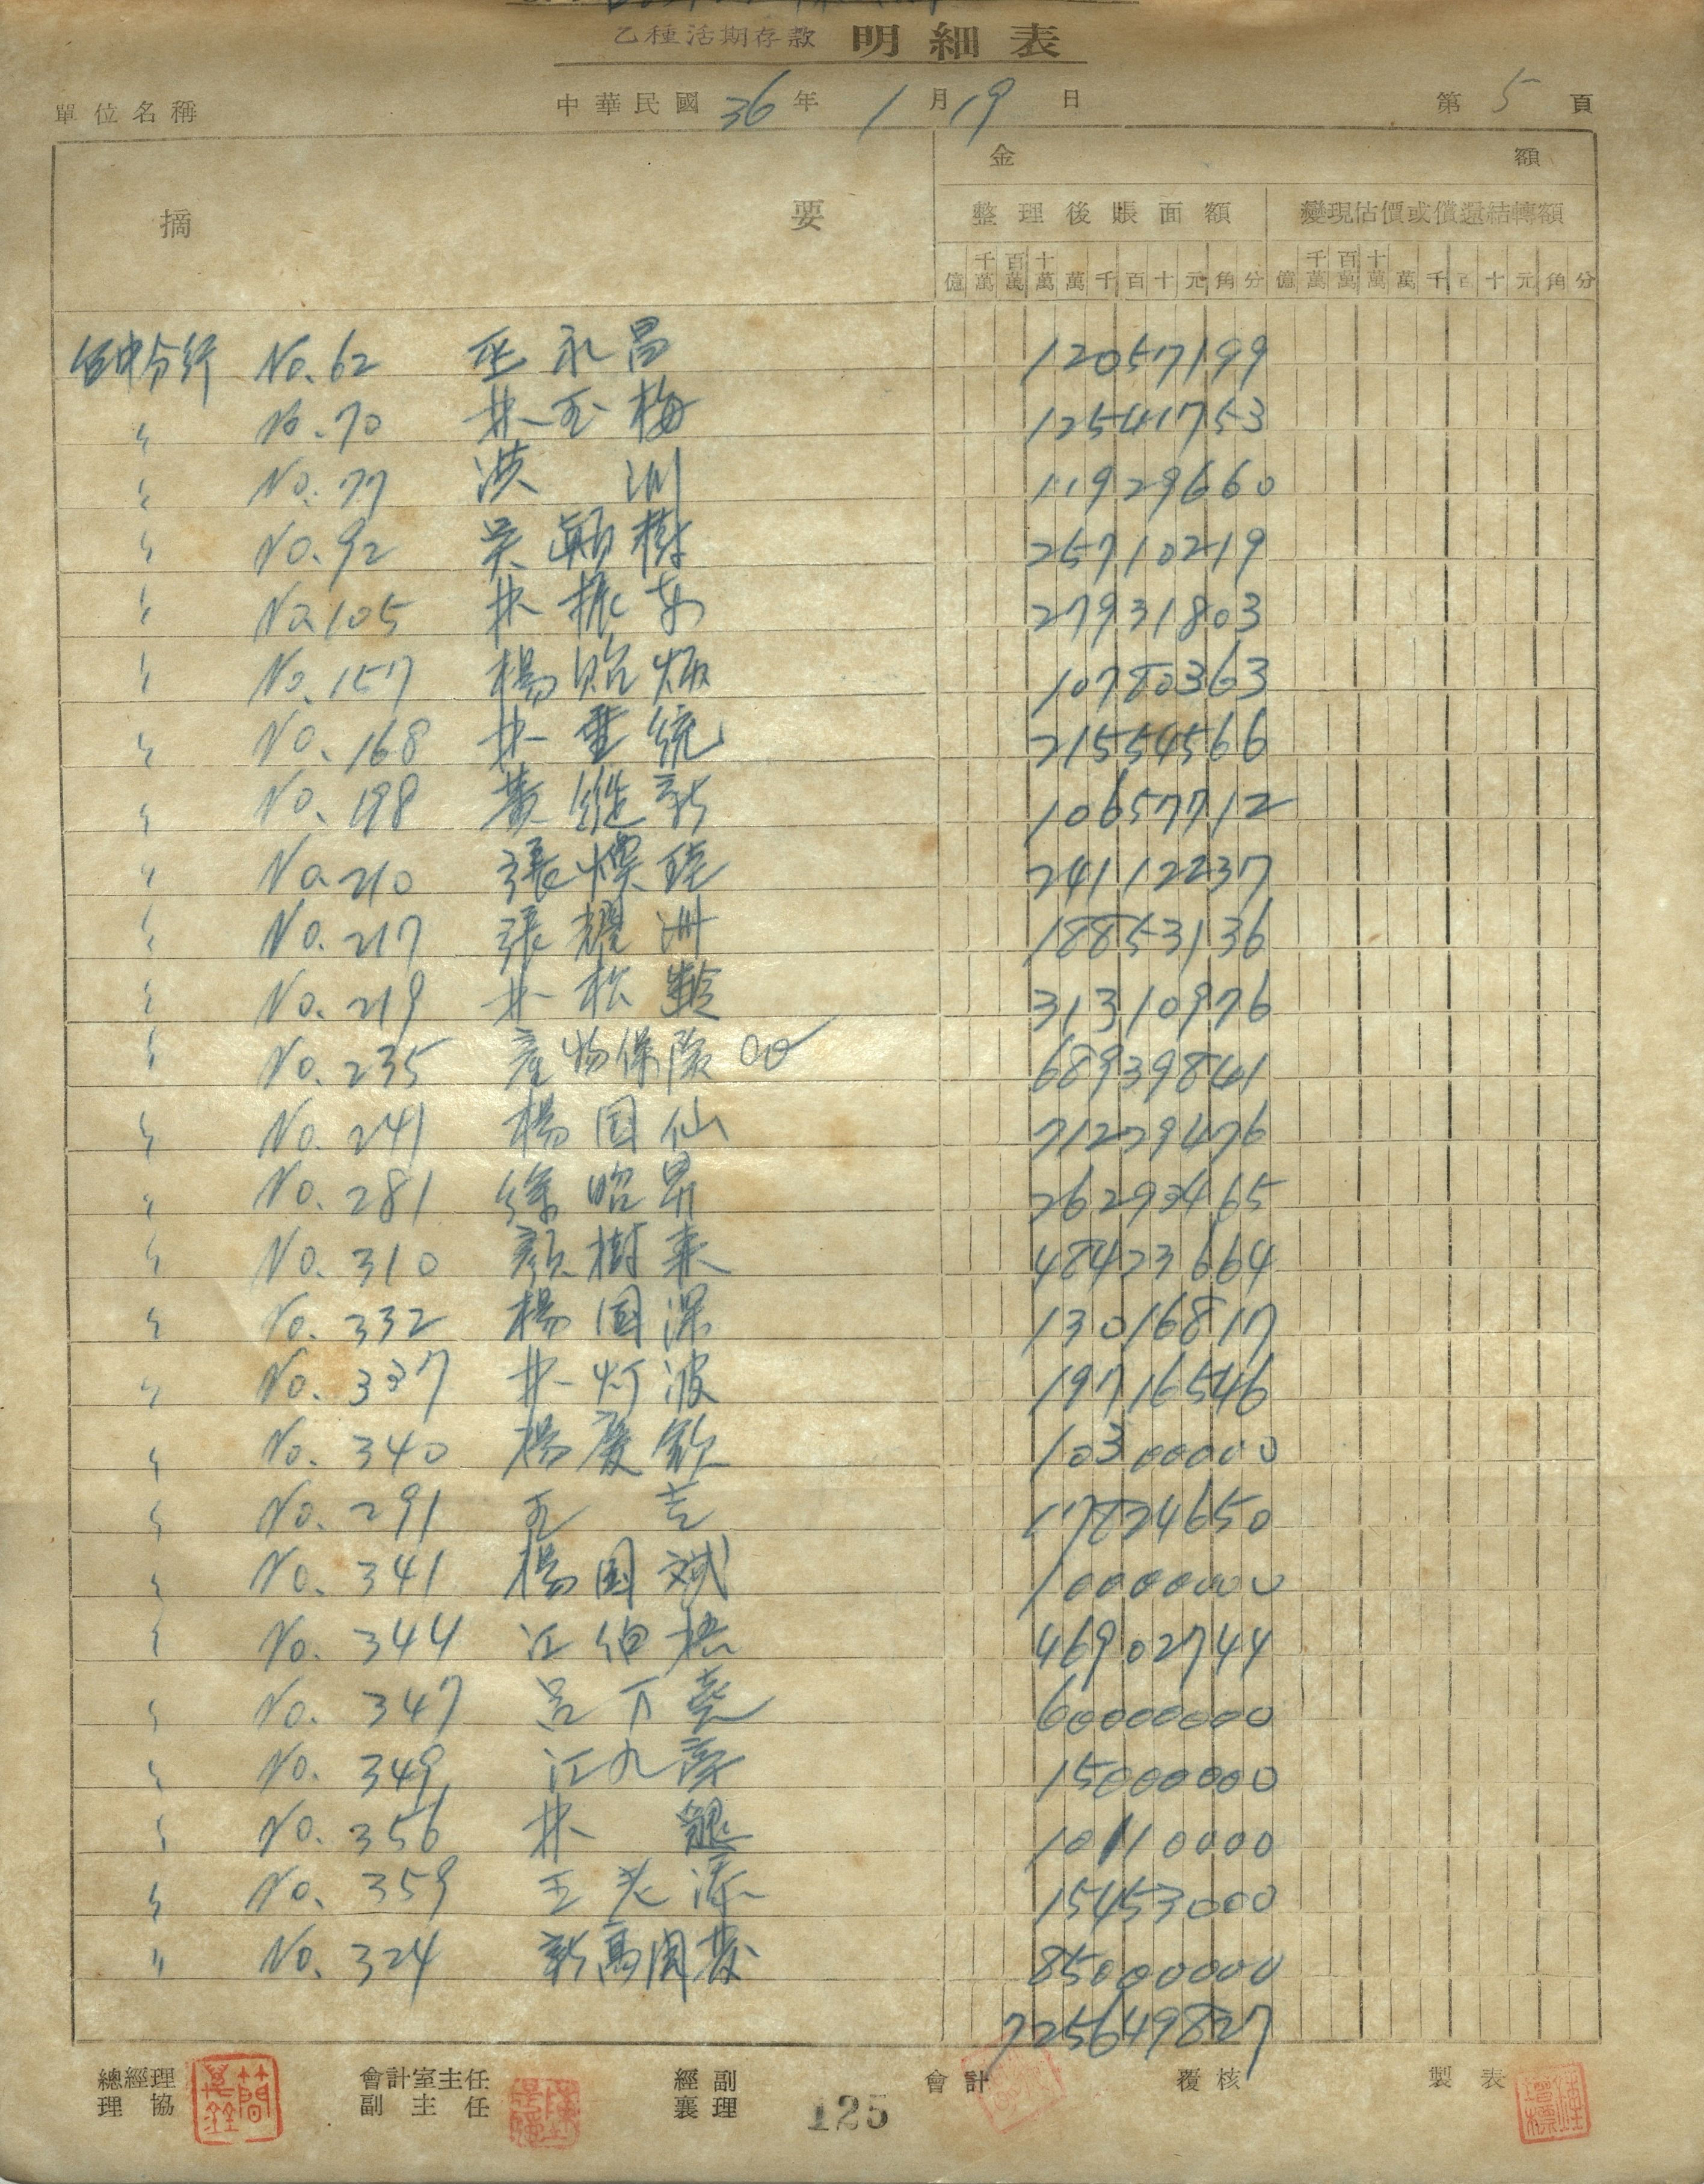 乙種活期存款 明細表
單位名稱 中華民國 36 年 1 月 19 日 第 5 頁
摘 要 金 額
整理後賬面額 變現估價或償還結轉額
億 千萬 百萬 十萬 萬 千 百 十 元 角 分 億 千萬 百萬 十萬 萬 千 百 十 元 角 分
台中分行 No. 62 巫永昌 12057199
〃 No. 70 林玉梅 12541753
〃 No. 77 洪 洲 11929660
〃 No. 92 吳朝樹 25710219
〃 No. 105 林振 27931803
〃 No. 157 楊貽炳 10780363
〃 No. 168 林垂統 21554566
〃 No. 198 黃縱 10657712
〃 No. 210 張 24112237
〃 No. 217 張耀洲 18853136
〃 No. 219 林松齡 31310976
〃 No. 235 產物保險 68939841
〃 No. 241 楊国仙 71279476
〃 No. 281 徐昭昇 26293465
〃 No. 310 顏樹來 48423664
〃 No. 332 楊国深 13016817
〃 No. 337 林灯波 19716546
〃 No. 340 楊慶欽 10300000
〃 No. 291 17824650
〃 No. 341 楊国斌 10000000
〃 No. 344 江伯 46902744
〃 No. 347 呂 60000000
〃 No. 349 江九 15000000
〃 No. 356 林 10110000
〃 No. 359 王 15453000
〃 No. 324 新高開發 85000000
725649827
總經理 會計室主任 經副 會計 覆核 製表
理協 副主任 襄理
125